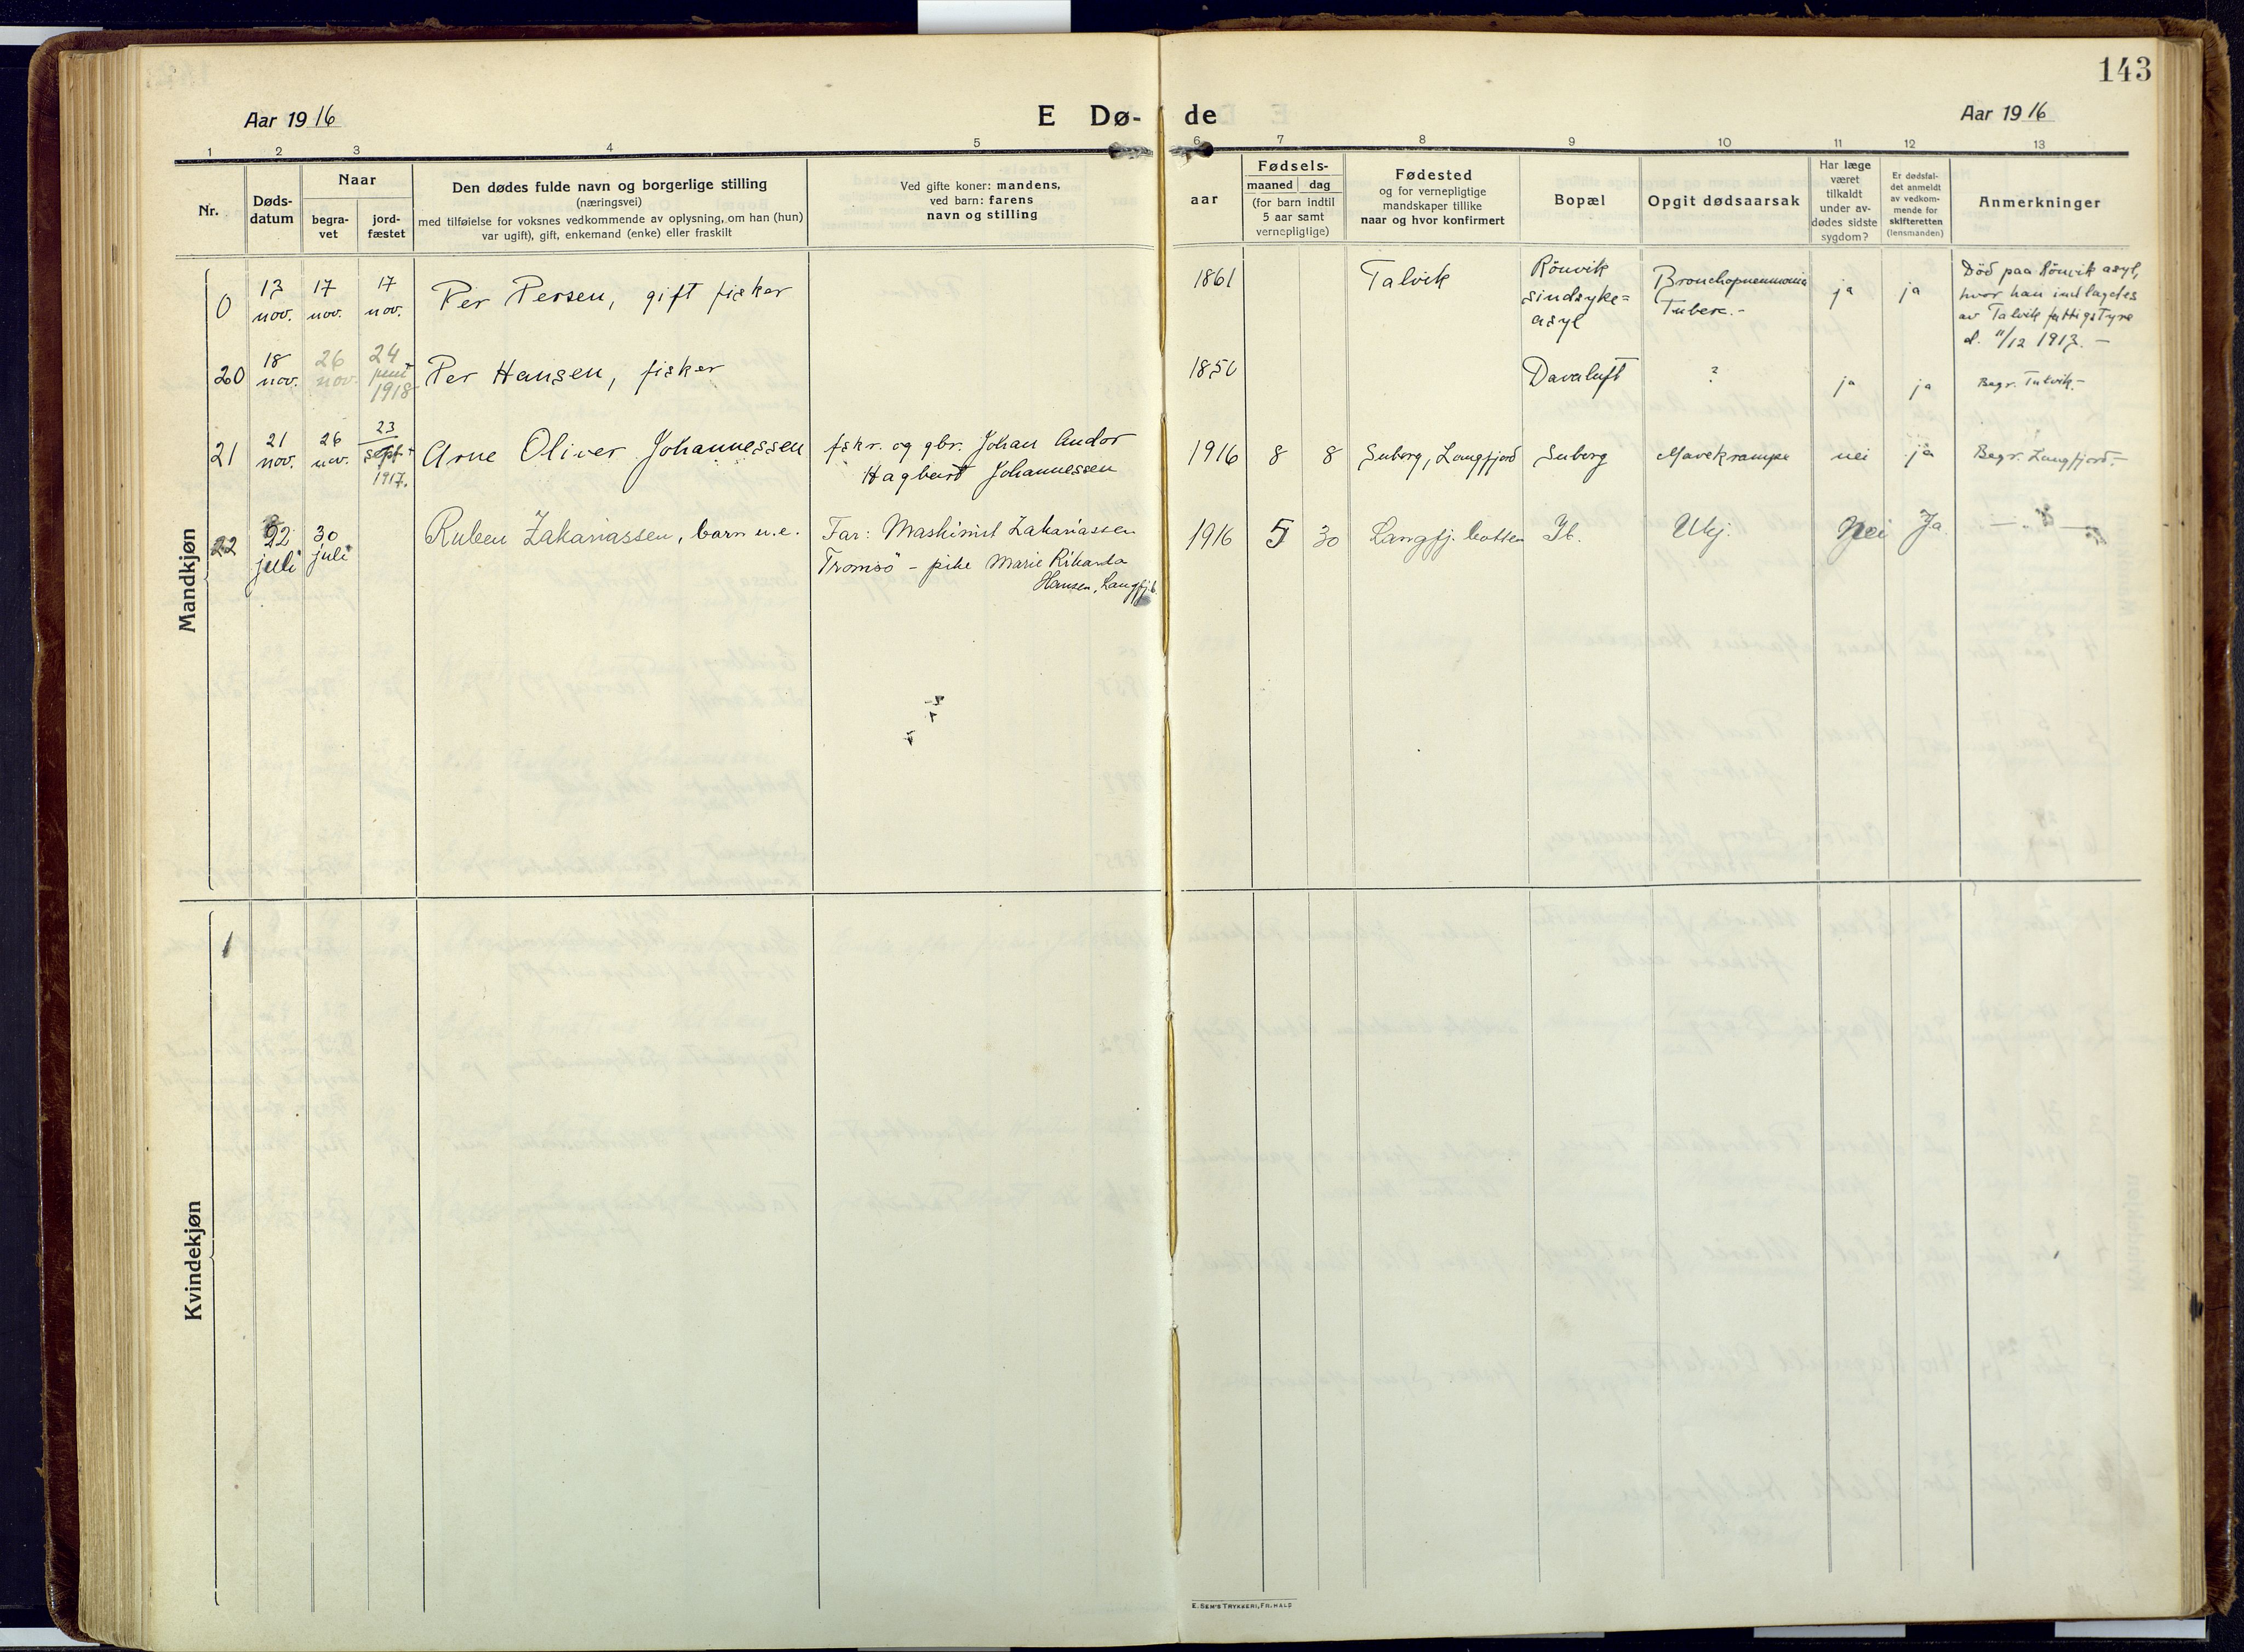 143
Aar 1916
E Dø-
de
Aar 1916
1 2 3 4 5 6 7 8 9 10 11 12 13
Nr.
Døds-
datum
Naar
begra-
vet
jord-
fæstet
Den dødes fulde navn og borgerlige stilling
(næringsvei)
med tilføielse for voksnes vedkommende av oplysning, om han (hun)
var ugift), gift, enkemand (enke) eller fraskilt
Ved gifte koner: mandens,
ved barn: farens
navn og stilling
Fødsels-
aar
maaned dag
(for barn indtil
5 aar samt
vernepligtige)
Fødested
og for vernepligtige
mandskaper tillike
naar og hvor konfirmert
Bopæl
Opgit dødsaarsak
Har læge
været
tilkaldt
under av-
dødes sidste
sygdom?
Er dødsfal-
det anmeldt
av vedkom-
mende for
skifteretten
(lensmanden)
Anmerkninger
Mandkjøn
0
13
nov.
17
nov.
17
nov.
Per Persen, gift fisker
1861
Talvik
Rönvik
sindsyke=
asyl
Bronchopneumonia
Tuberc.-
ja
ja
Död paa Rönvik asyl,
hvor han indlagdes
av Talvik fattigstyre
d. 11/12 1913. -
20
18
nov.
26
nov.
24
juni
1918
Per Hansen, fisker
1850
Davaluft
?
ja
ja
Begr. Talvik.-
21
21
nov.
26
nov.
23
sept.
1917.
Arne Oliver Johannessen
fskr. og gbr. Johan Andor
Hagbart Johannessen
1916
8
8
Suborg, Langfjord
Suborg
Mavekrampe
nei
ja
Begr. Langfjord.-
22
22
juli
30
juli
Ruben Zakariassen, barn u.e.
Far: Maskinist Zakariassen
Tromsö - pike Marie Rikarda
Hansen, Langfj.b.
1916
5
30
Langfj.botten
Ib.
Ukj.
Nei
Ja
— " —
Kvindekjøn
E. SEM'S TRYKKERI, FR.HALD